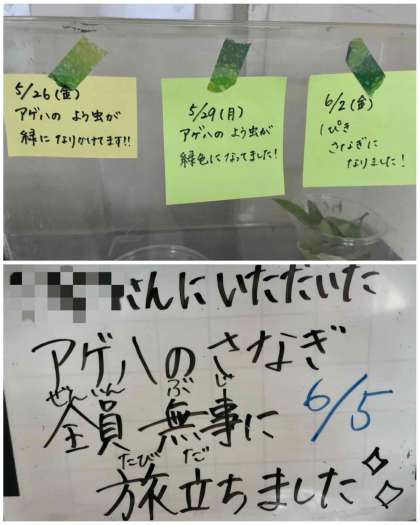 5/26(金)
アゲハの よう虫が
緑に なりかけてます!!
5/29(月)
アゲハの よう虫が
緑色になってました!
6/2(金)
1ぴき
さなぎに
なりました!
さんにいただいた
アゲハのさなぎ
ぜんいん ぶじ
全員 無事に
6/5
たびだ
旅立ちました